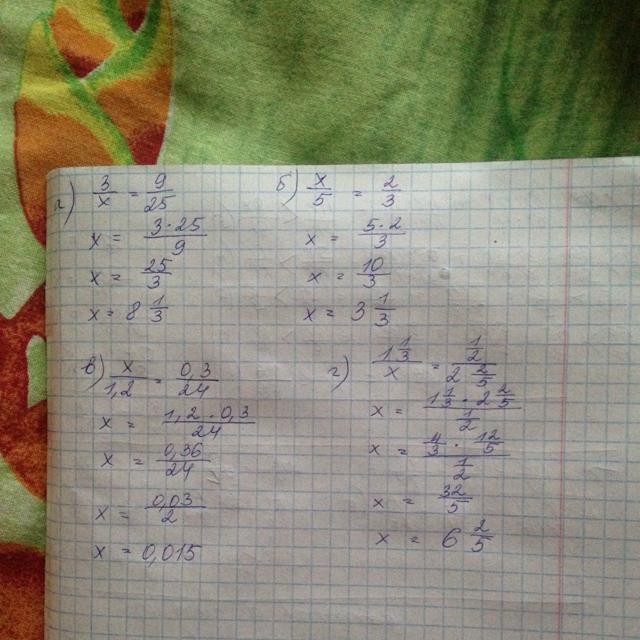 а) 3/x = 9/25
x = 3·25/9
x = 25/3
x = 8 1/3
б) x/5 = 2/3
x = 5·2/3
x = 10/3
x = 3 1/3
в) x/1,2 = 0,3/24
x = 1,2·0,3/24
x = 0,36/24
x = 0,03/2
x = 0,015
г) 1 1/3 / x = 1/2 / 2 2/5
x = 1 1/3 · 2 2/5 / 1/2
x = 4/3 · 12/5 / 1/2
x = 32/5
x = 6 2/5